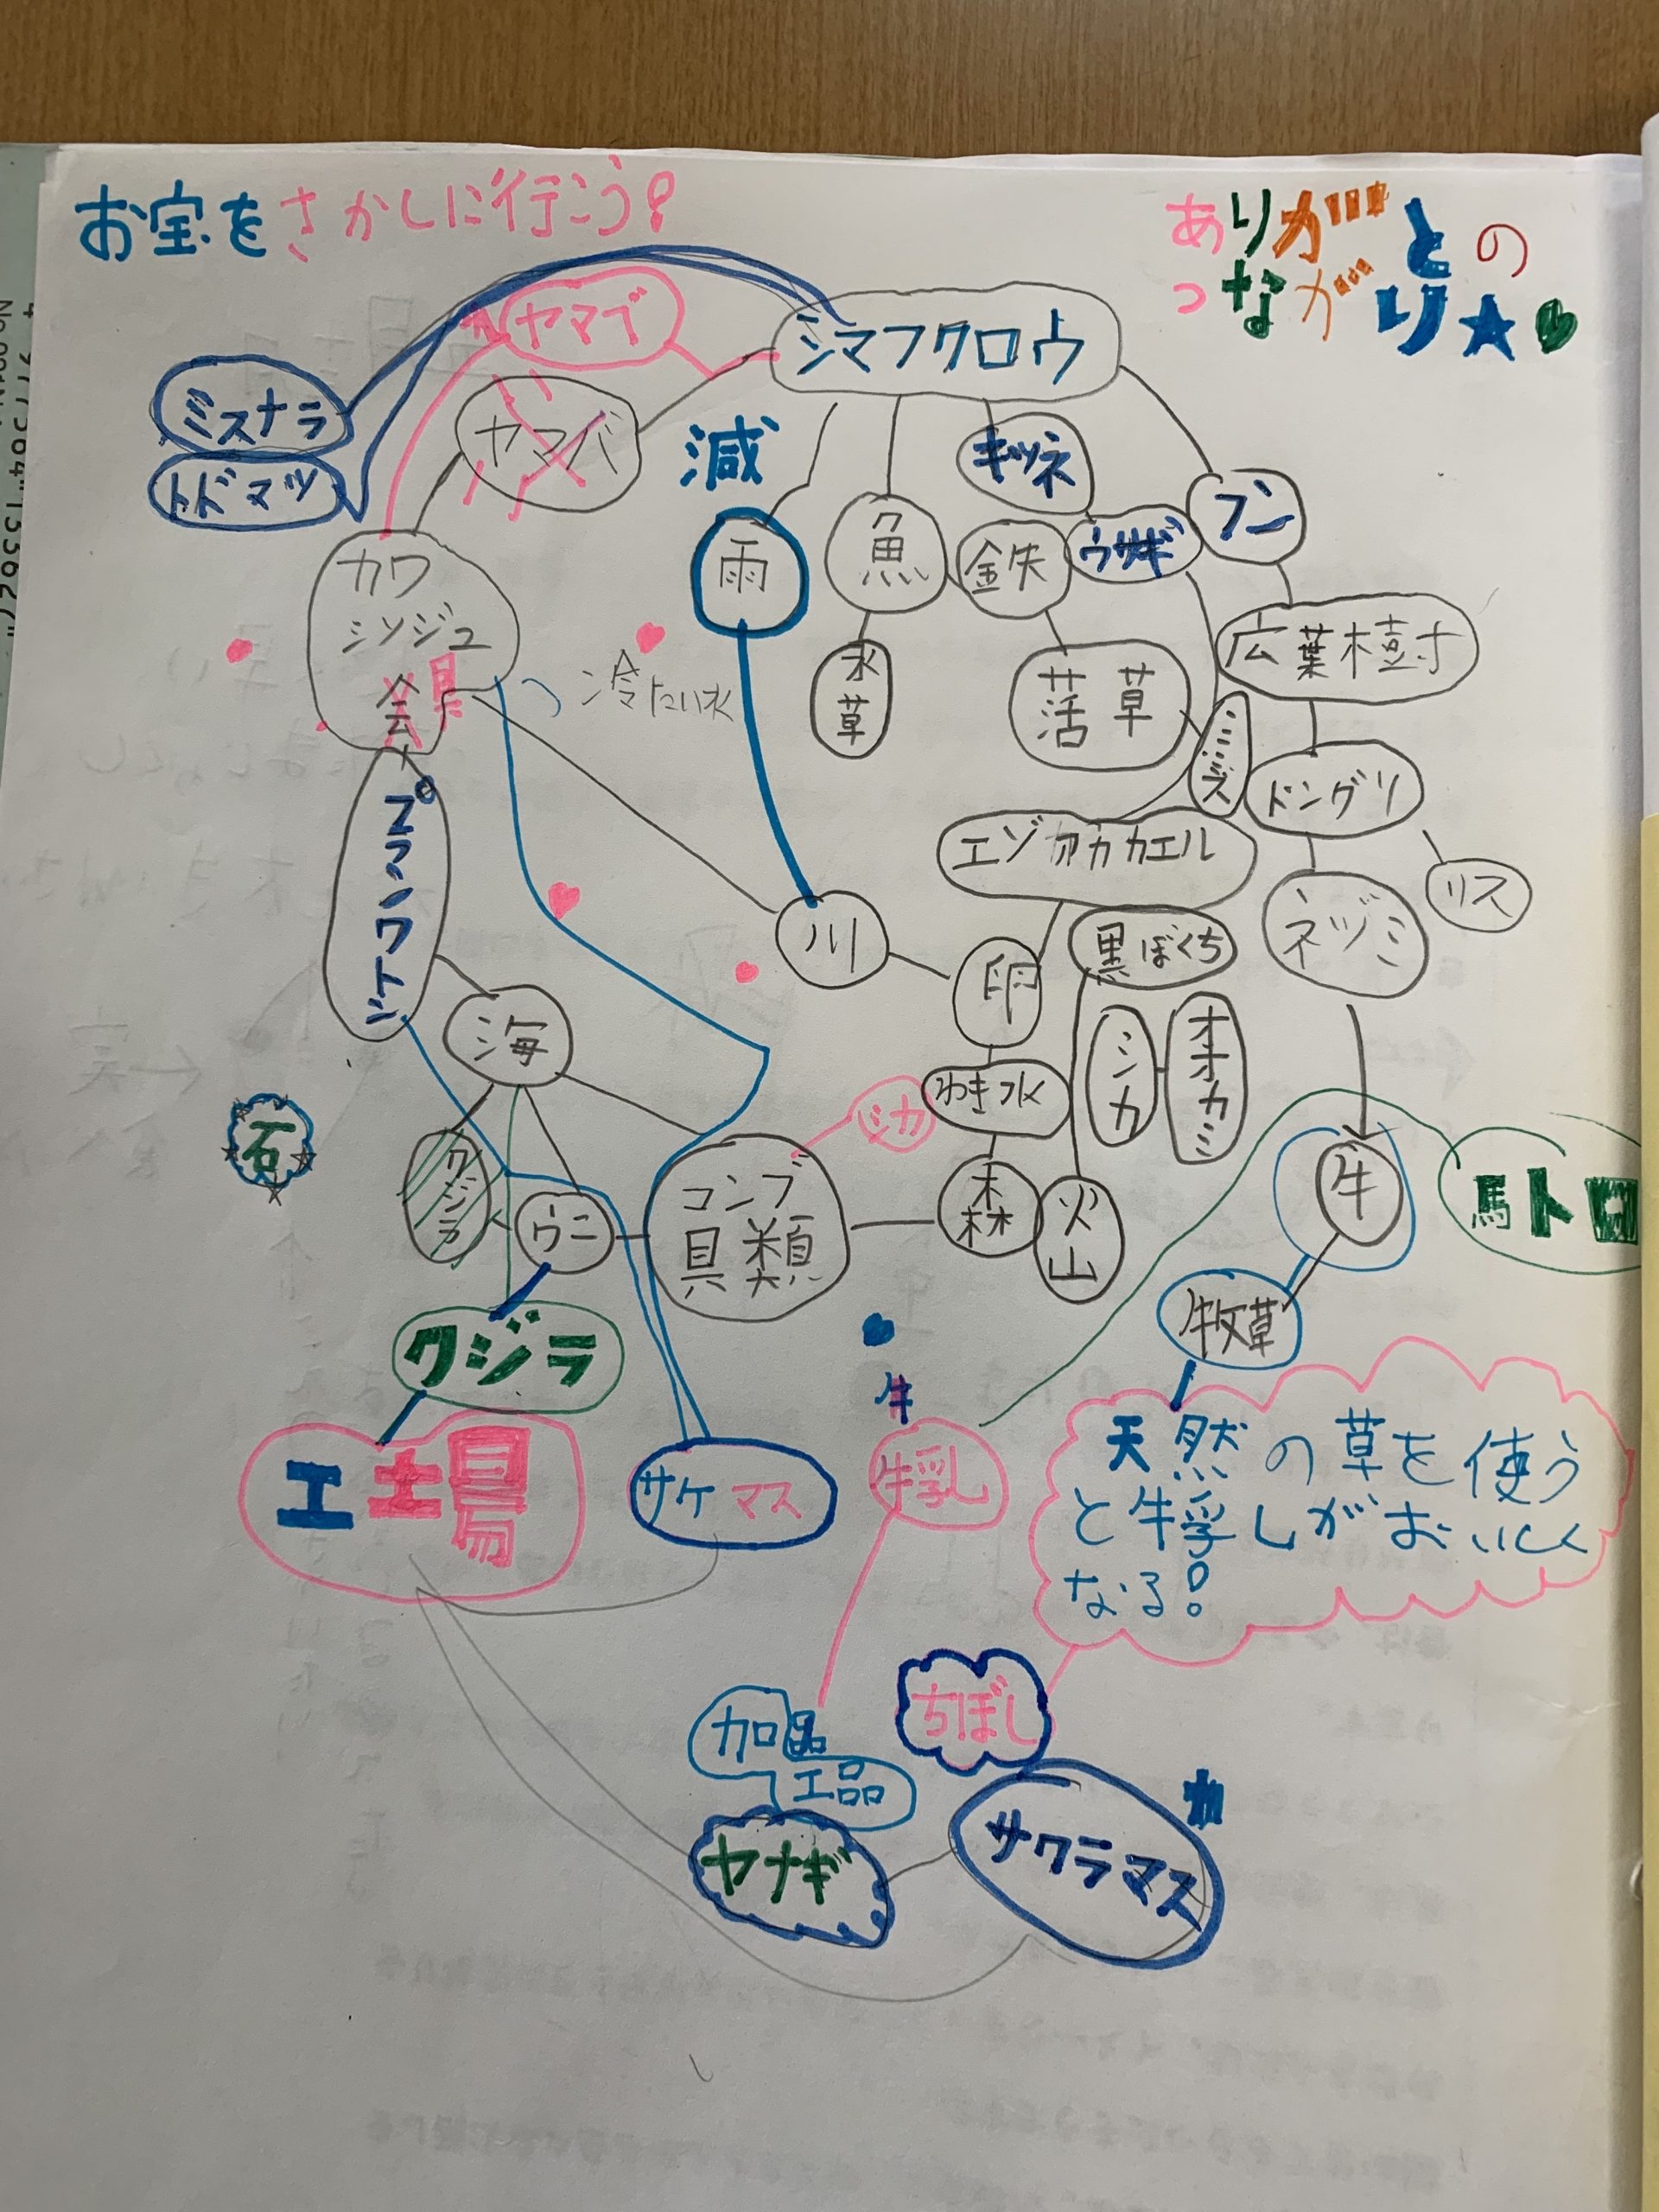 お宝をさかしに行こう!
ありがとの
つながり★
ヤマブ
シマフクロウ
ミズナラ
トドマツ
ヤマバ
減
キツネ
フン
カワ
シンジュ
貝
雨
魚
鉄
ウサギ
広葉樹
冷たい水
水
草
活草
ミミズ
ドングリ
プランクトン
エゾアカカエル
リス
ネヅミ
川
卵
黒ぼくち
海
わき水
シカ
オオカミ
シカ
石
クジラ
ウニ
コンブ
貝類
森
火山
牛
馬トロ
牧草
クジラ
牛
工場
サケマス
牛乳
天然の草を使う
と牛乳しがおいしく
なる!
ちぼし
加品
工品
ヤナギ
サクラマス